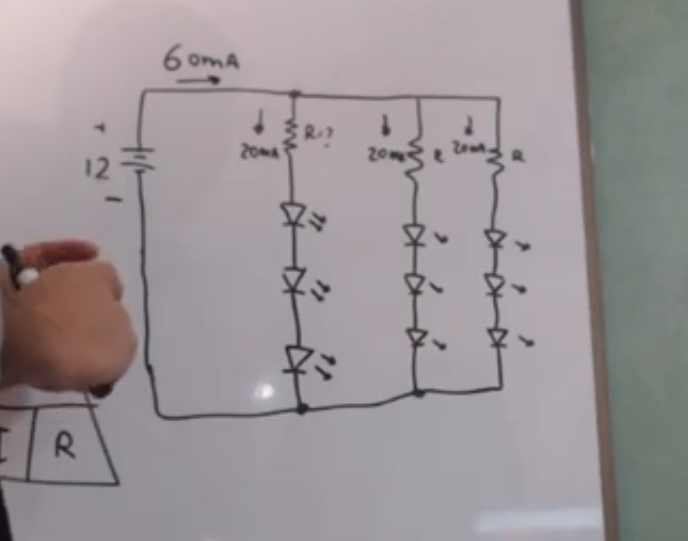 60mA
+
12
-
20mA
R=?
20mA
R
20mA
R
I
R